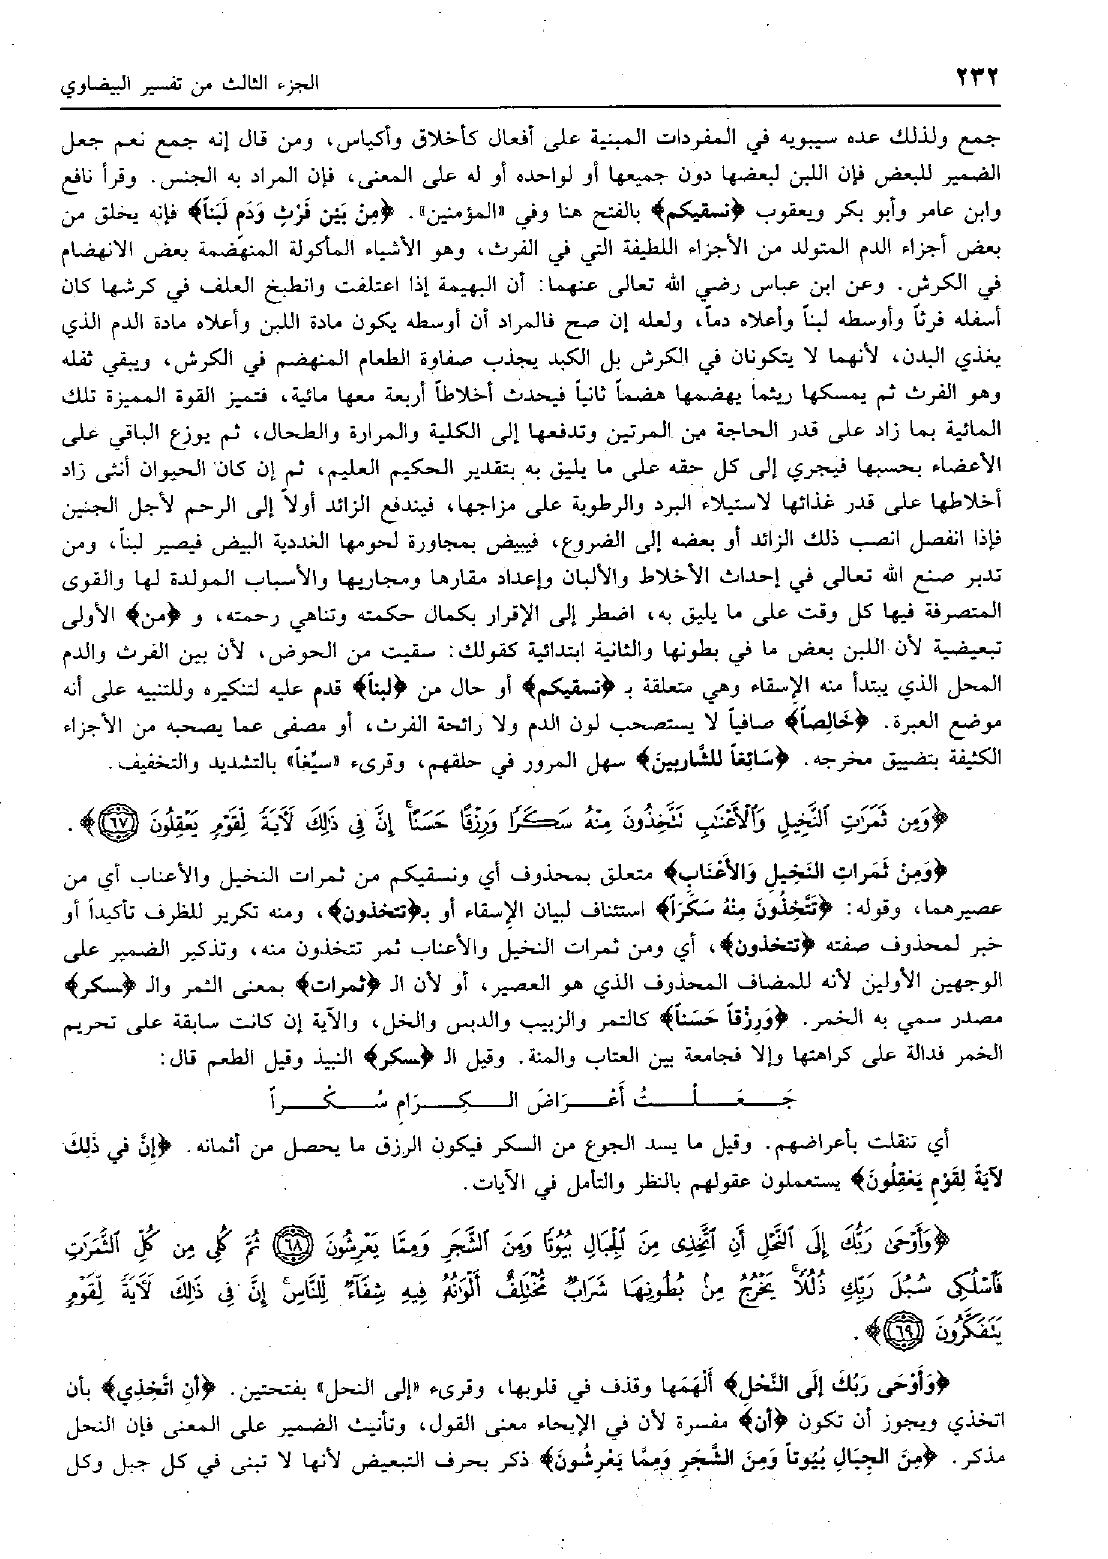 ٢٣٢
الجزء الثالث من تفسير البيضاوي
جمع ولذلك عده سيبويه في المفردات المبنية على أفعال كأخلاق وأكياس، ومن قال إنه جمع نعم جعل
الضمير للبعض فإن اللبن لبعضها دون جميعها أو لواحده أو له على المعنى، فإن المراد به الجنس. وقرأ نافع
وابن عامر وأبو بكر ويعقوب ﴿نسقيكم﴾ بالفتح هنا وفي «المؤمنين». ﴿مِنْ بَيْنِ فَرْثٍ وَدَمٍ لَبَناً﴾ فإنه يخلق من
بعض أجزاء الدم المتولد من الأجزاء اللطيفة التي في الفرث، وهو الأشياء المأكولة المنهضمة بعض الانهضام
في الكرش. وعن ابن عباس رضي الله تعالى عنهما: أن البهيمة إذا اعتلفت وانطبخ العلف في كرشها كان
أسفله فرثاً وأوسطه لبناً وأعلاه دماً، ولعله إن صح فالمراد أن أوسطه يكون مادة اللبن وأعلاه مادة الدم الذي
يغذي البدن، لأنهما لا يتكونان في الكرش بل الكبد يجذب صفاوة الطعام المنهضم في الكرش، ويبقي ثفله
وهو الفرث ثم يمسكها ريثما يهضمها هضماً ثانياً فيحدث أخلاطاً أربعة معها مائية، فتميز القوة المميزة تلك
المائية بما زاد على قدر الحاجة من المرتين وتدفعها إلى الكلية والمرارة والطحال، ثم يوزع الباقي على
الأعضاء بحسبها فيجري إلى كل حقه على ما يليق به بتقدير الحكيم العليم، ثم إن كان الحيوان أنثى زاد
أخلاطها على قدر غذائها لاستيلاء البرد والرطوبة على مزاجها، فيندفع الزائد أولاً إلى الرحم لأجل الجنين
فإذا انفصل انصب ذلك الزائد أو بعضه إلى الضروع، فيبيض بمجاورة لحومها الغددية البيض فيصير لبناً، ومن
تدبر صنع الله تعالى في إحداث الأخلاط والألبان وإعداد مقارها ومجاريها والأسباب المولدة لها والقوى
المتصرفة فيها كل وقت على ما يليق به، اضطر إلى الإقرار بكمال حكمته وتناهي رحمته، و ﴿من﴾ الأولى
تبعيضية لأن اللبن بعض ما في بطونها والثانية ابتدائية كقولك: سقيت من الحوض، لأن بين الفرث والدم
المحل الذي يبتدأ منه الإسقاء وهي متعلقة بـ ﴿نسقيكم﴾ أو حال من ﴿لبناً﴾ قدم عليه لتنكيره وللتنبيه على أنه
موضع العبرة. ﴿خَالِصاً﴾ صافياً لا يستصحب لون الدم ولا رائحة الفرث، أو مصفى عما يصحبه من الأجزاء
الكثيفة بتضييق مخرجه. ﴿سَائِغاً للشَّاربينَ﴾ سهل المرور في حلقهم، وقرىء «سيِّغاً» بالتشديد والتخفيف.
﴿وَمِن ثَمَرَٰتِ ٱلنَّخِيلِ وَٱلْأَعْنَٰبِ نَتَّخِذُونَ مِنْهُ سَكَرًا وَرِزْقًا حَسَنًا إِنَّ فِى ذَٰلِكَ لَآيَةً لِقَوْمٍ يَعْقِلُونَ ﴿٦٧﴾﴾.
﴿وَمِنْ ثَمَراتِ النَخيلِ وَالأَعْنابِ﴾ متعلق بمحذوف أي ونسقيكم من ثمرات النخيل والأعناب أي من
عصيرهما، وقوله: ﴿تَتَّخِذُونَ مِنْهُ سَكَرَاً﴾ استئناف لبيان الإسقاء أو بـ﴿تتخذون﴾، ومنه تكرير للظرف تأكيداً أو
خبر لمحذوف صفته ﴿تتخذون﴾، أي ومن ثمرات النخيل والأعناب ثمر تتخذون منه، وتذكير الضمير على
الوجهين الأولين لأنه للمضاف المحذوف الذي هو العصير، أو لأن الـ ﴿ثمرات﴾ بمعنى الثمر والـ ﴿سكر﴾
مصدر سمي به الخمر. ﴿وَرِزْقاً حَسَناً﴾ كالتمر والزبيب والدبس والخل، والآية إن كانت سابقة على تحريم
الخمر فدالة على كراهتها وإلا فجامعة بين العتاب والمنة. وقيل الـ ﴿سكر﴾ النبيذ وقيل الطعم قال:
جَـعَـلْـتُ أَعْـرَاضَ الـكِـرَامِ سُـكْـراً
أي تنقلت بأعراضهم. وقيل ما يسد الجوع من السكر فيكون الرزق ما يحصل من أثمانه. ﴿إِنَّ في ذَلِكَ
لآيَةً لِقَوْمٍ يَعْقِلُونَ﴾ يستعملون عقولهم بالنظر والتأمل في الآيات.
﴿وَأَوْحَى رَبُّكَ إِلَى ٱلنَّحْلِ أَنِ ٱتَّخِذِى مِنَ ٱلْجِبَالِ بُيُوتًا وَمِنَ ٱلشَّجَرِ وَمِمَّا يَعْرِشُونَ ﴿٦٨﴾ ثُمَّ كُلِى مِن كُلِّ ٱلثَّمَرَٰتِ
فَٱسْلُكِى سُبُلَ رَبِّكِ ذُلُلًا يَخْرُجُ مِنۢ بُطُونِهَا شَرَابٌ مُّخْتَلِفٌ أَلْوَٰنُهُۥ فِيهِ شِفَآءٌ لِلنَّاسِ إِنَّ فِى ذَٰلِكَ لَآيَةً لِّقَوْمٍ
يَتَفَكَّرُونَ ﴿٦٩﴾﴾.
﴿وَأَوْحَى رَبُّكَ إِلَى النَّحْلِ﴾ أَلْهَمَها وقذف في قلوبها، وقرىء «إلى النحل» بفتحتين. ﴿أَنِ اتَّخِذِي﴾ بأن
اتخذي ويجوز أن تكون ﴿أن﴾ مفسرة لأن في الإيحاء معنى القول، وتأنيث الضمير على المعنى فإن النحل
مذكر. ﴿مِنَ الجِبَالِ بُيُوتاً وَمِنَ الشَّجَرِ وَمِمَّا يَعْرِشُونَ﴾ ذكر بحرف التبعيض لأنها لا تبنى في كل جبل وكل